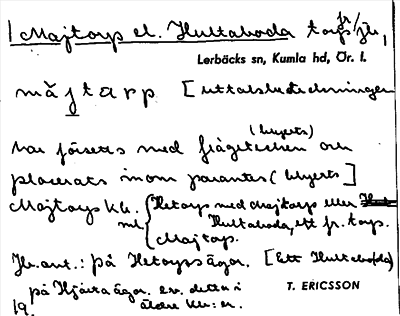 Majtorp el. Hultaboda torp fr/jb,
Lerbäcks sn, Kumla hd, Ör. l.
måjtarp [uttalsbeteckningen
har försetts med frågetecken och
(bryerts)
placerats inom parantes (bryerts]
Majtorp kk. Hetorp med Majtorp eller
Hultaboda, ett fr. torp.
Majtorp.
Jb. ant.: på Hetorps ägor. [Ett Hultaboda)
på Hjärta ägor. ev. detta i
T. ERICSSON
19 äldre kb:er.